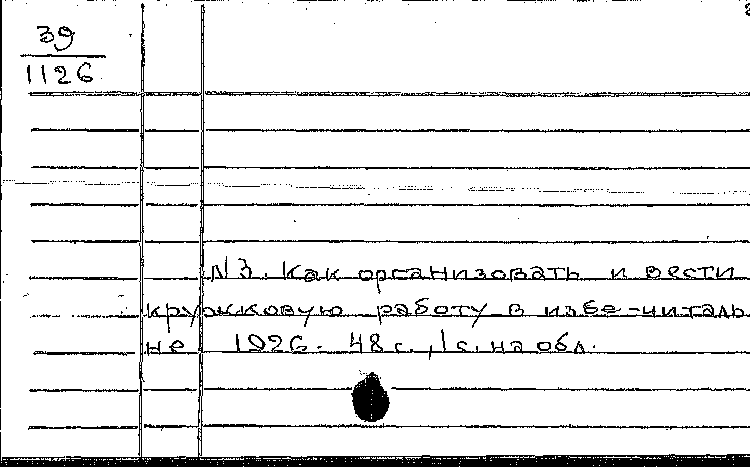 39
1126
N3. Как организовать и вести
кружковую работу в избе-читаль
не 1926. 48 с., 1 с. на обл.